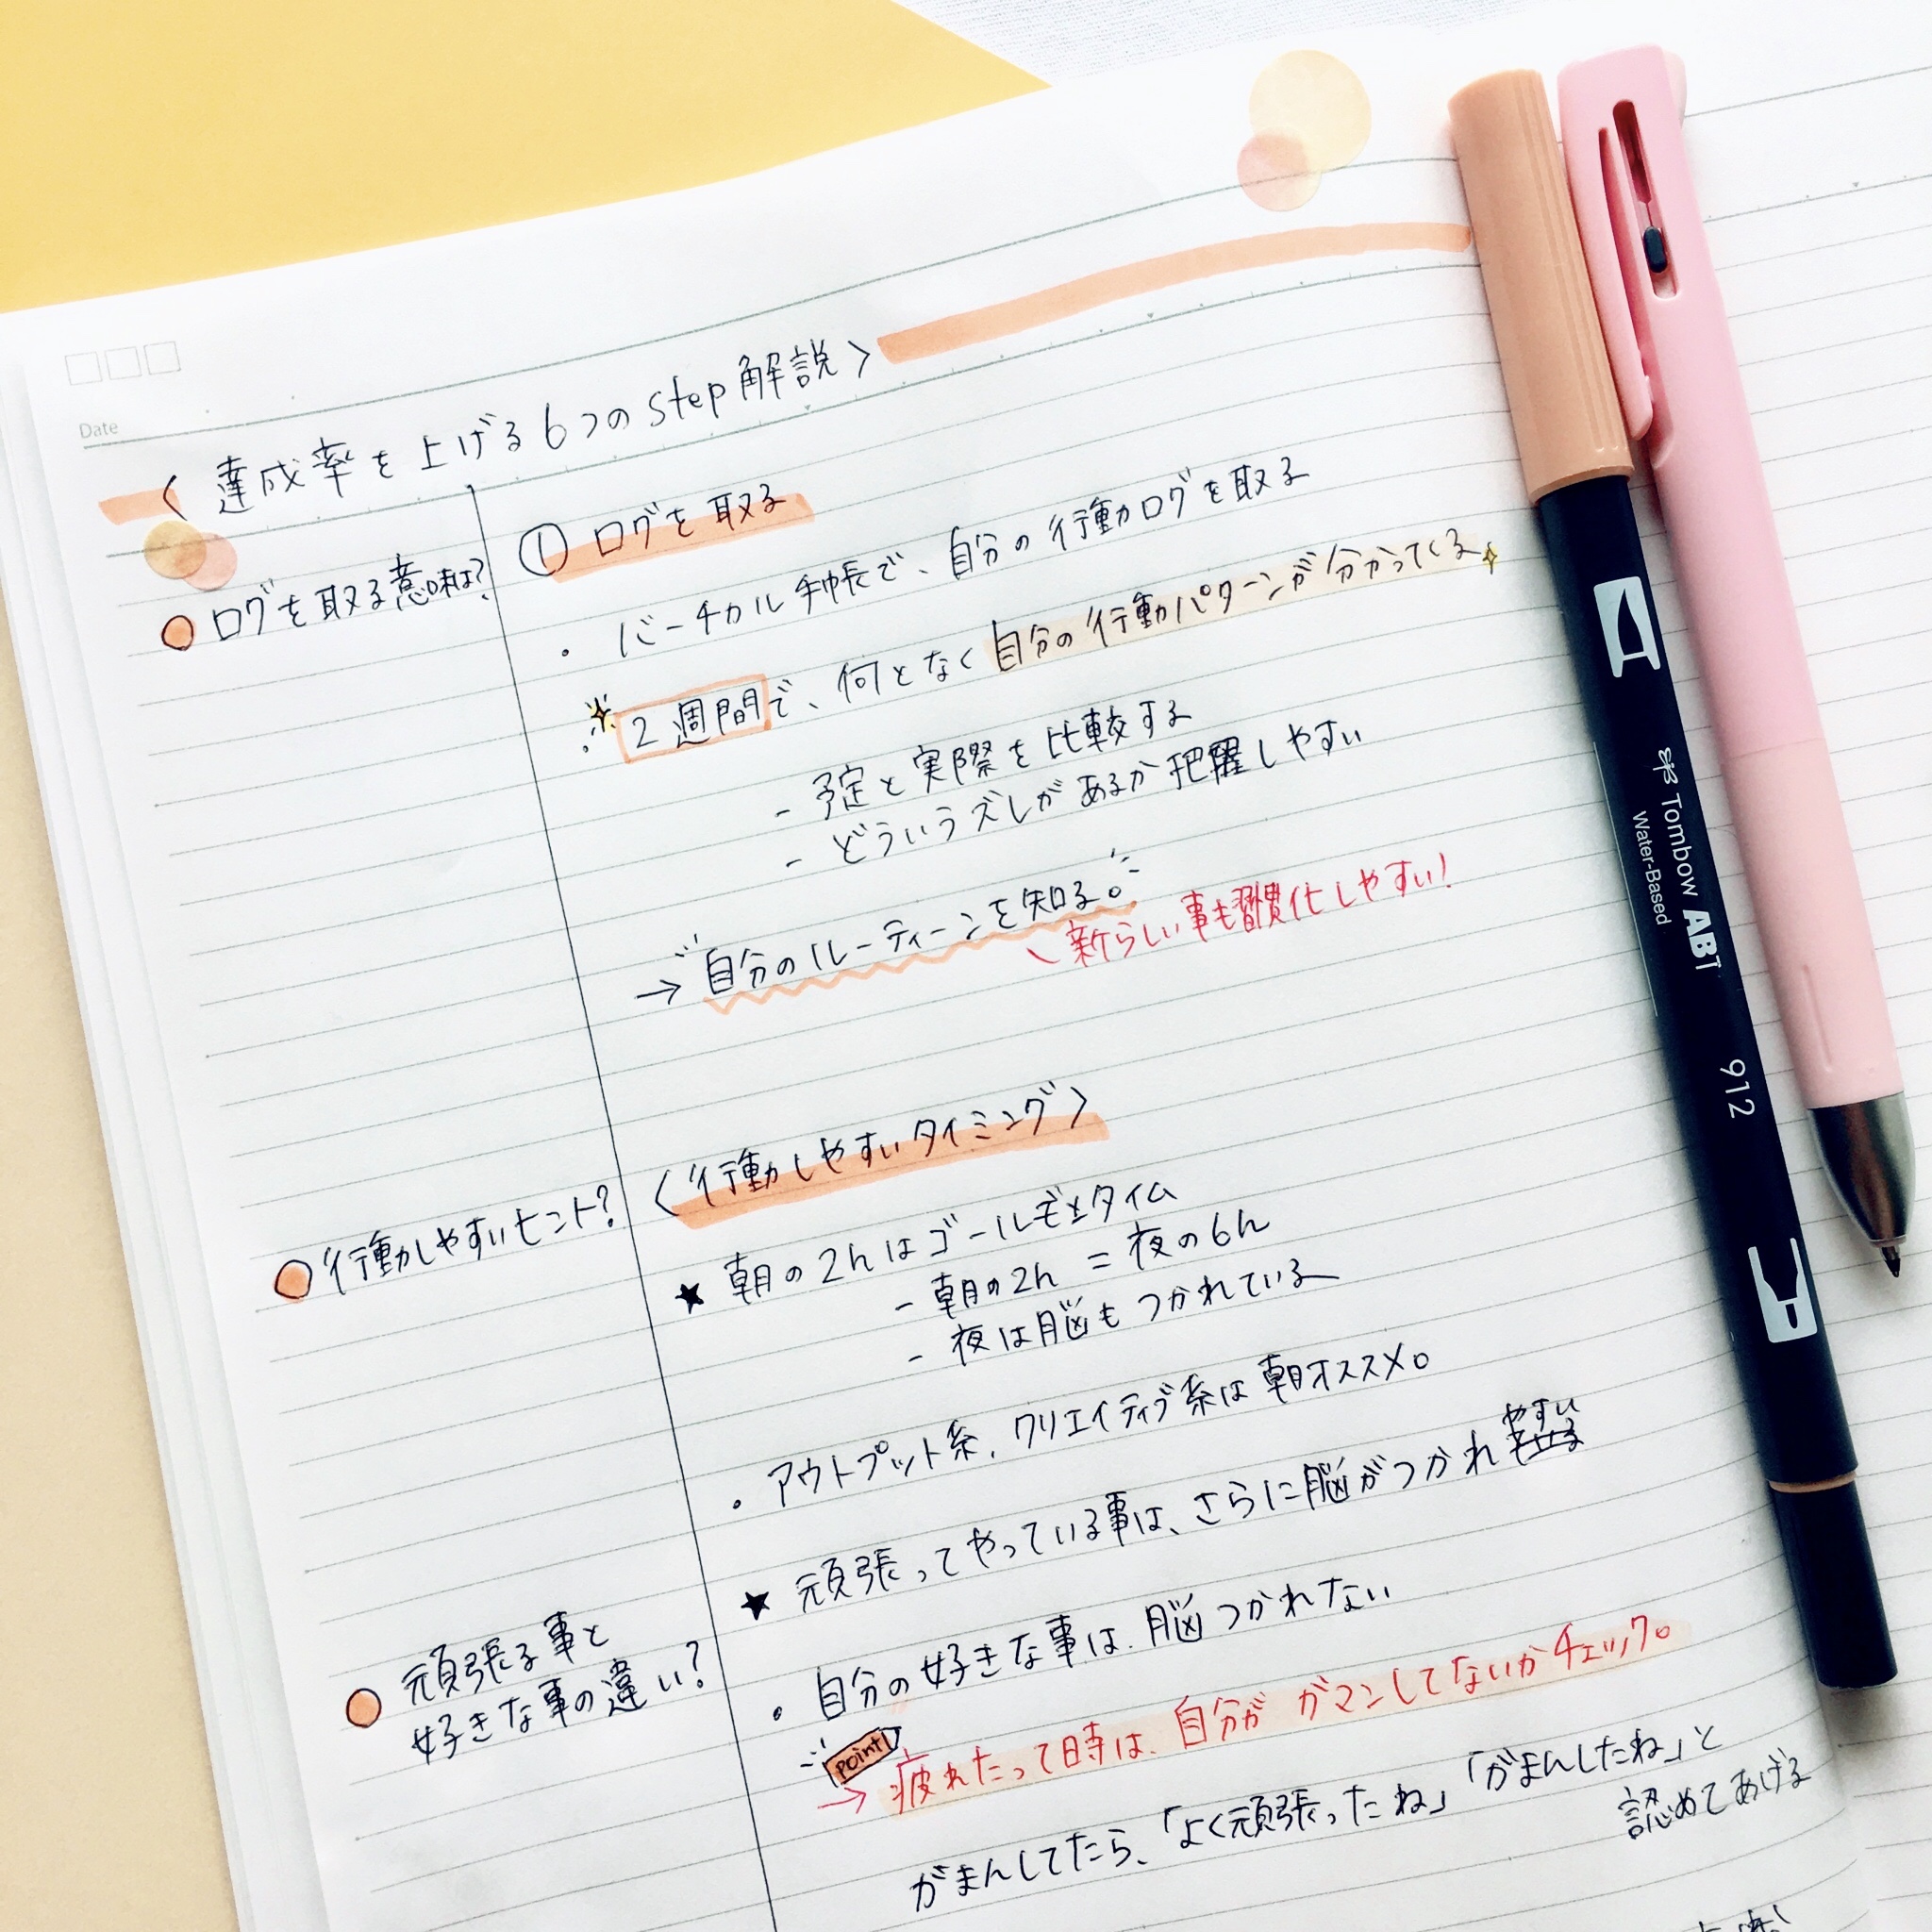 Date
〈 達成率を上げる6つのstep解説 〉
○ ログを取る意味は?
① ログを取る
・ バーチカル手帳で、自分の行動ログを取る
・ 2週間で、何となく自分の行動パターンが分かってくる
- 予定と実際を比較する
- どういうズレがあるか把握しやすい
→ 自分のルーティーンを知る。
新らしい事も習慣化しやすい!
○ 行動しやすいヒント?
〈行動しやすいタイミング〉
★ 朝の2hはゴールデンタイム
- 朝の2h = 夜の6h
- 夜は脳もつかれている
・ アウトプット系、クリエイティブ系は朝オススメ。
★ 頑張ってやっている事は、さらに脳がつかれやすい
○ 頑張る事と
好きな事の違い?
・ 自分の好きな事は、脳つかれない
point
→ 疲れたって時は、自分がガマンしてないかチェック。
がまんしてたら、「よく頑張ったね」「がまんしたね」と
認めてあげる
Tombow ABT
Water-Based
912